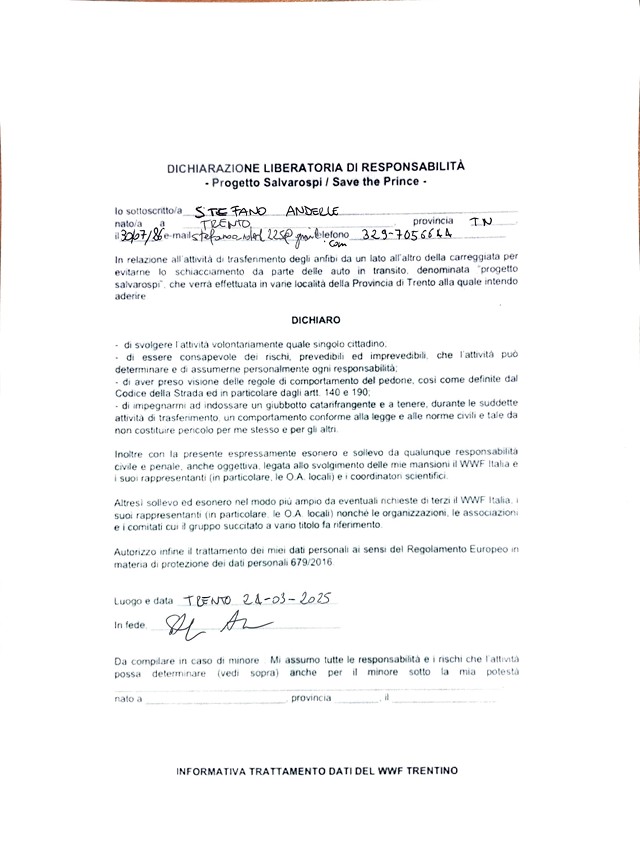 DICHIARAZIONE LIBERATORIA DI RESPONSABILITÀ
- Progetto Salvarospi / Save the Prince -
Io sottoscritto/a STEFANO ANDERLE
nato/a a TRENTO provincia TN
il 30/07/86 e-mail telefono 329-7056644
.com
In relazione all'attività di trasferimento degli anfibi da un lato all'altro della carreggiata per
evitarne lo schiacciamento da parte delle auto in transito, denominata "progetto
salvarospi", che verrà effettuata in varie località della Provincia di Trento alla quale intendo
aderire
DICHIARO
- di svolgere l'attività volontariamente quale singolo cittadino;
- di essere consapevole dei rischi, prevedibili ed imprevedibili, che l'attività può
determinare e di assumerne personalmente ogni responsabilità;
- di aver preso visione delle regole di comportamento del pedone, così come definite dal
Codice della Strada ed in particolare dagli artt. 140 e 190;
- di impegnarmi ad indossare un giubbotto catarifrangente e a tenere, durante le suddette
attività di trasferimento, un comportamento conforme alla legge e alle norme civili e tale da
non costituire pericolo per me stesso e per gli altri.
Inoltre con la presente espressamente esonero e sollevo da qualunque responsabilità
civile e penale, anche oggettiva, legata allo svolgimento delle mie mansioni il WWF Italia e
i suoi rappresentanti (in particolare, le O.A. locali) e i coordinatori scientifici.
Altresì sollevo ed esonero nel modo più ampio da eventuali richieste di terzi il WWF Italia, i
suoi rappresentanti (in particolare, le O.A. locali) nonché le organizzazioni, le associazioni
e i comitati cui il gruppo succitato a vario titolo fa riferimento.
Autorizzo infine il trattamento dei miei dati personali ai sensi del Regolamento Europeo in
materia di protezione dei dati personali 679/2016.
Luogo e data TRENTO 21-03-2025
In fede,
Da compilare in caso di minore: Mi assumo tutte le responsabilità e i rischi che l'attività
possa determinare (vedi sopra) anche per il minore sotto la mia potestà
nato a , provincia , il
INFORMATIVA TRATTAMENTO DATI DEL WWF TRENTINO